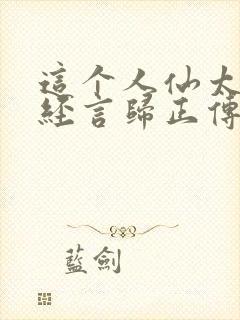 這个人仙太
經言歸正傳
藍劍